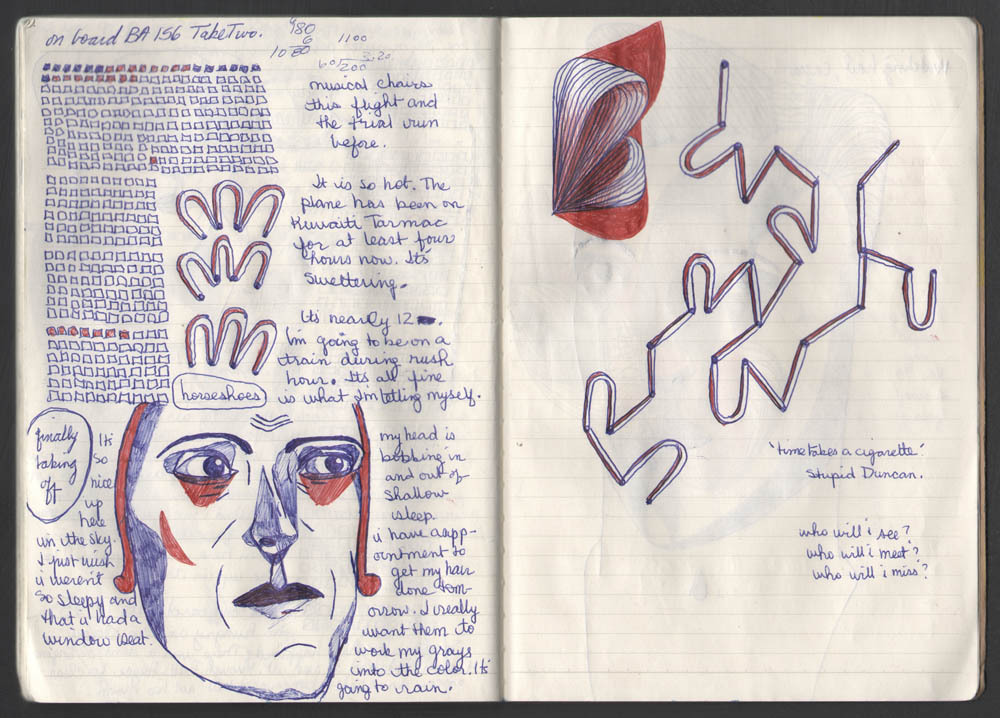 on board BA 156 Take Two.
980
6
1080
1100
60/200
3.20
musical chairs
this flight and
the trial run
before.
It is so hot. The
plane has been on
Kuwaiti Tarmac
for at least four
hours now. Its
sweltering.
Its nearly 12
I'm going to be on a
train during rush
hour. Its all fine
is what I'm telling myself.
horseshoes
finally
taking
off
It's
so
nice
up
here
in the sky.
I just wish
i weren't
so sleepy and
that i had a
window seat.
my head is
bobbing in
and out of
shallow
sleep.
i have a app-
ointment to
get my hair
done tom-
orrow. I really
want them to
work my grays
into the color. It's
going to rain.
'time takes a cigarette'.
Stupid Duncan.
who will i see?
who will i meet?
who will i miss?